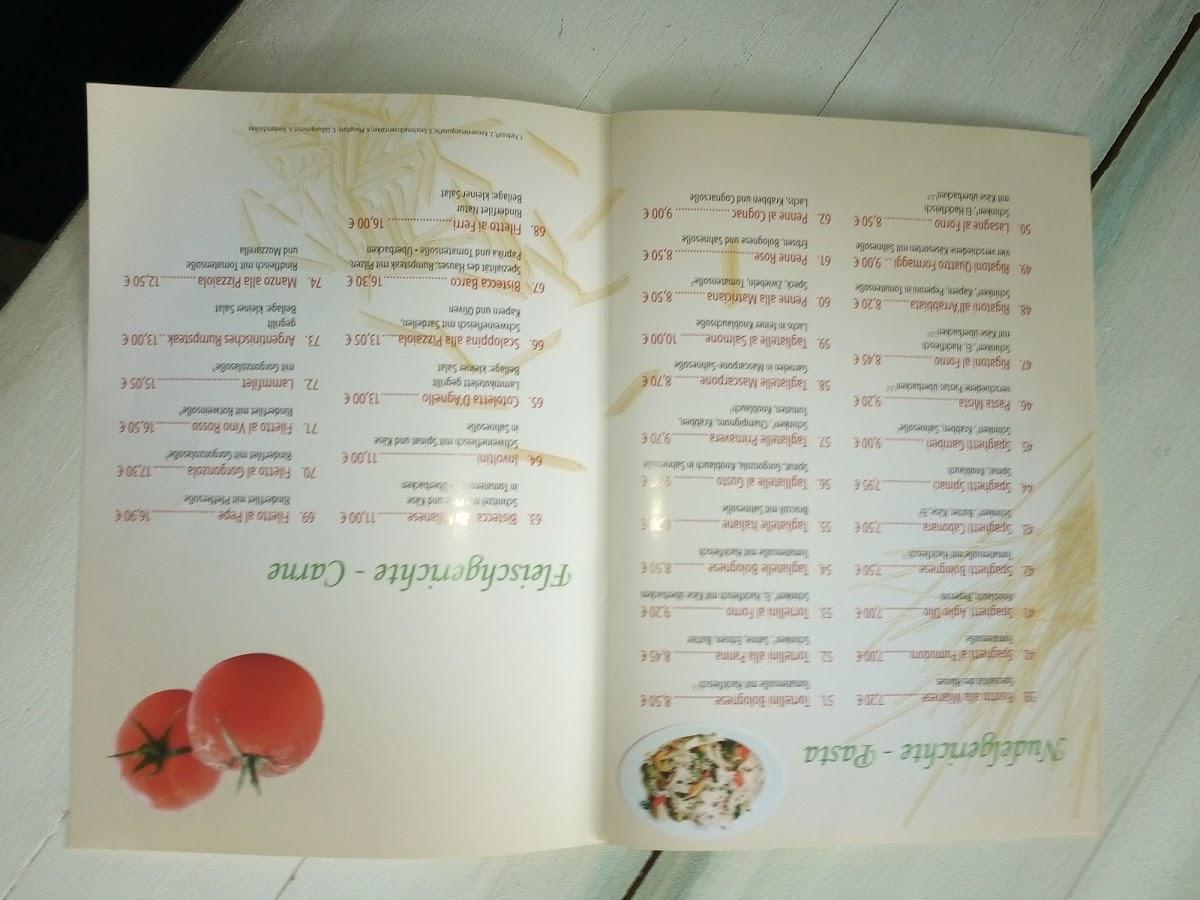 Nudelgerichte - Pasta
39. Risotto alla Milanese 7,20 €
Spezialität des Hauses
40. Spaghetti al Pomodoro 7,00 €
Tomatensoße
41. Spaghetti Aglio Olio 7,00 €
Knoblauch, Peperoni
42. Spaghetti Bolognese 7,50 €
Tomatensoße mit Hackfleisch
43. Spaghetti Cabonara 7,50 €
Schinken, Butter, Käse, Ei
44. Spaghetti Spinaci 7,95 €
Spinat, Knoblauch
45. Spaghetti Gamberi 9,00 €
Schinken, Krabben, Sahnesoße
46. Pasta Mista 9,20 €
verschiedene Pastas überbacken
47. Rigatoni al Forno 8,45 €
Schinken, Ei, Hackfleisch
mit Käse überbacken
48. Rigatoni All'Arrabbiata 8,20 €
Schinken, Kapern, Peperon in Tomatensoße
49. Rigatoni Quattro Formaggi 9,00 €
vier verschiedene Käsesorten mit Sahnesoße
50. Lasagne al Forno 8,50 €
Schinken, Ei Hackfleisch
mit Käse überbacken
51. Tortellini Bolognese 8,50 €
Tomatensoße mit Hackfleisch
52. Tortellini alla Panna 8,45 €
Schinken, Sahne, Erbsen, Butter
53. Tortellini al Forno 9,20 €
Schinken, Ei, Hackfleisch mit Käse überbacken
54. Tagliatelle Bolognese 8,50 €
Tomatensoße mit Hackfleisch
55. Tagliatelle Italiane
Broccoli mit Sahnesoße
56. Tagliatelle al Gusto
Spinat, Gorgonzola, Knoblauch in Sahnesoße
57. Tagliatelle Primavera 9,70 €
Schinken, Champignons, Krabben,
Tomaten, Knoblauch
58. Tagliatelle Mascarpone 8,70 €
Garnelen in Mascarpone-Sahnesoße
59. Tagliatelle al Salmone 10,00 €
Lachs in feiner Knoblauchsoße
60. Penne alla Matriciana 8,50 €
Speck, Zwiebeln, Tomatensoße
61. Penne Rose 8,50 €
Erbsen, Bolognese und Sahnesoße
62. Penne al Cognac 9,00 €
Lachs, Krabben und Cognacsoße
Fleischgerichte - Carne
63. Bistecca Milanese 11,00 €
Schnitzel mit und Käse
in Tomatensoße Überbacken
64. Involtini 11,00 €
Schweinefleisch mit Spinat und Käse
in Sahnesoße
65. Cotoletta D'Agnello 13,00 €
Lammkotelett gegrillt
Beilage, kleiner Salat
66. Scaloppina alla Pizzaiola 13,05 €
Schweinefleisch mit Sardellen,
Kapern und Oliven
67. Bistecca Barco 16,30 €
Spezialität des Hauses, Rumpsteak mit, Pilzen
Paprika und Tomatensoße • Überbacken
68. Filetto ai Ferri 16,00 €
Rinderfilet Natur
Beilage, kleiner Salat
69. Filetto al Pepe 16,90 €
Rinderfilet mit Pfeffersoße
70. Filetto al Gorgonzola 17,30 €
Rinderfilet mit Gorgonzolasoße
71. Filetto al Vino Rosso 16,50 €
Rinderfilet mit Rotweinsoße
72. Lammfilet 15,05 €
mit Gorgonzolasoße
73. Argentinisches Rumpsteak 13,00 €
gegrillt
Beilage, kleiner Salat
74. Manzo alla Pizzaiola 12,50 €
Rindfleisch mit Tomatensoße
und Mozzarella
1. Farbstoff, 2. Konservierungsstoffe, 3. Geschmacksverstärker, 4. Phosphate, 5. Süßungsmittel, 6. Vorderschinken